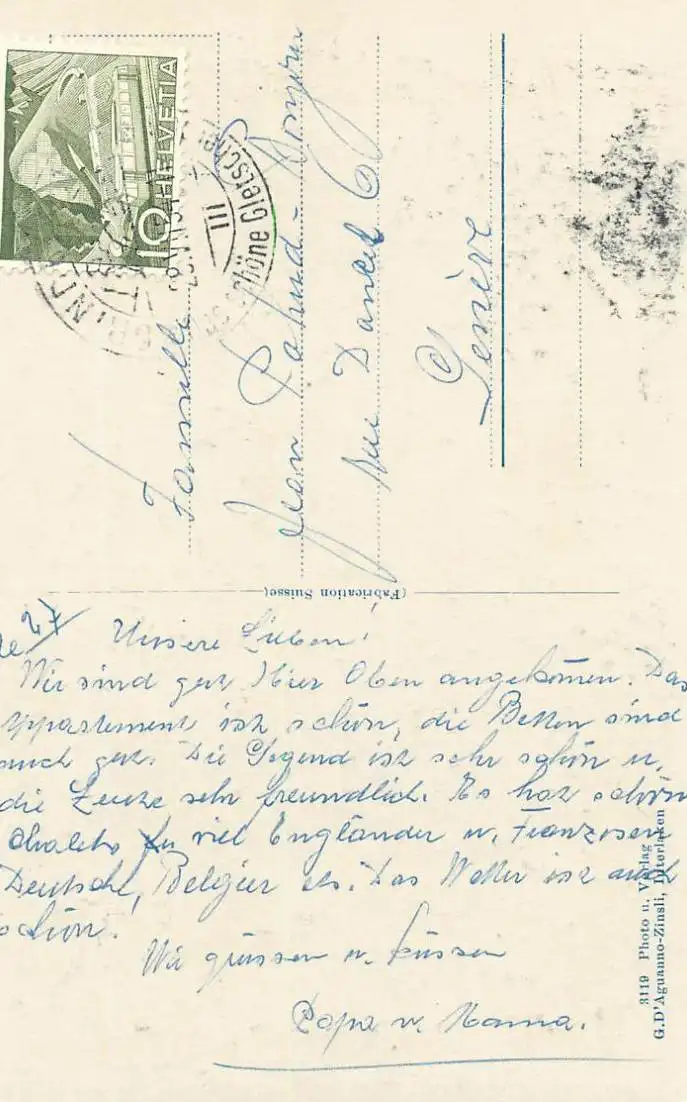 27
Unsere Lieben!
Wir sind gut Hier Oben angekomen. Das
Appartement ist schön, die Betten sind
auch gut. Die Gegend ist sehr schön u.
die Leute sehr freundlich. Es hat schöne
Chalets, viel Engländer u. Franzosen
Deutsche, Belgier etc. Das Wetter ist auch
schön!
Wir grüssen u. küssen
Papa u. Mama.
Famille
Jean
Rue Dancet 6
Genève
HELVETIA
10
III
(Fabrication Suisse)
3119 Photo u. Verlag
G.D'Aguanno-Zinsli, Interlaken